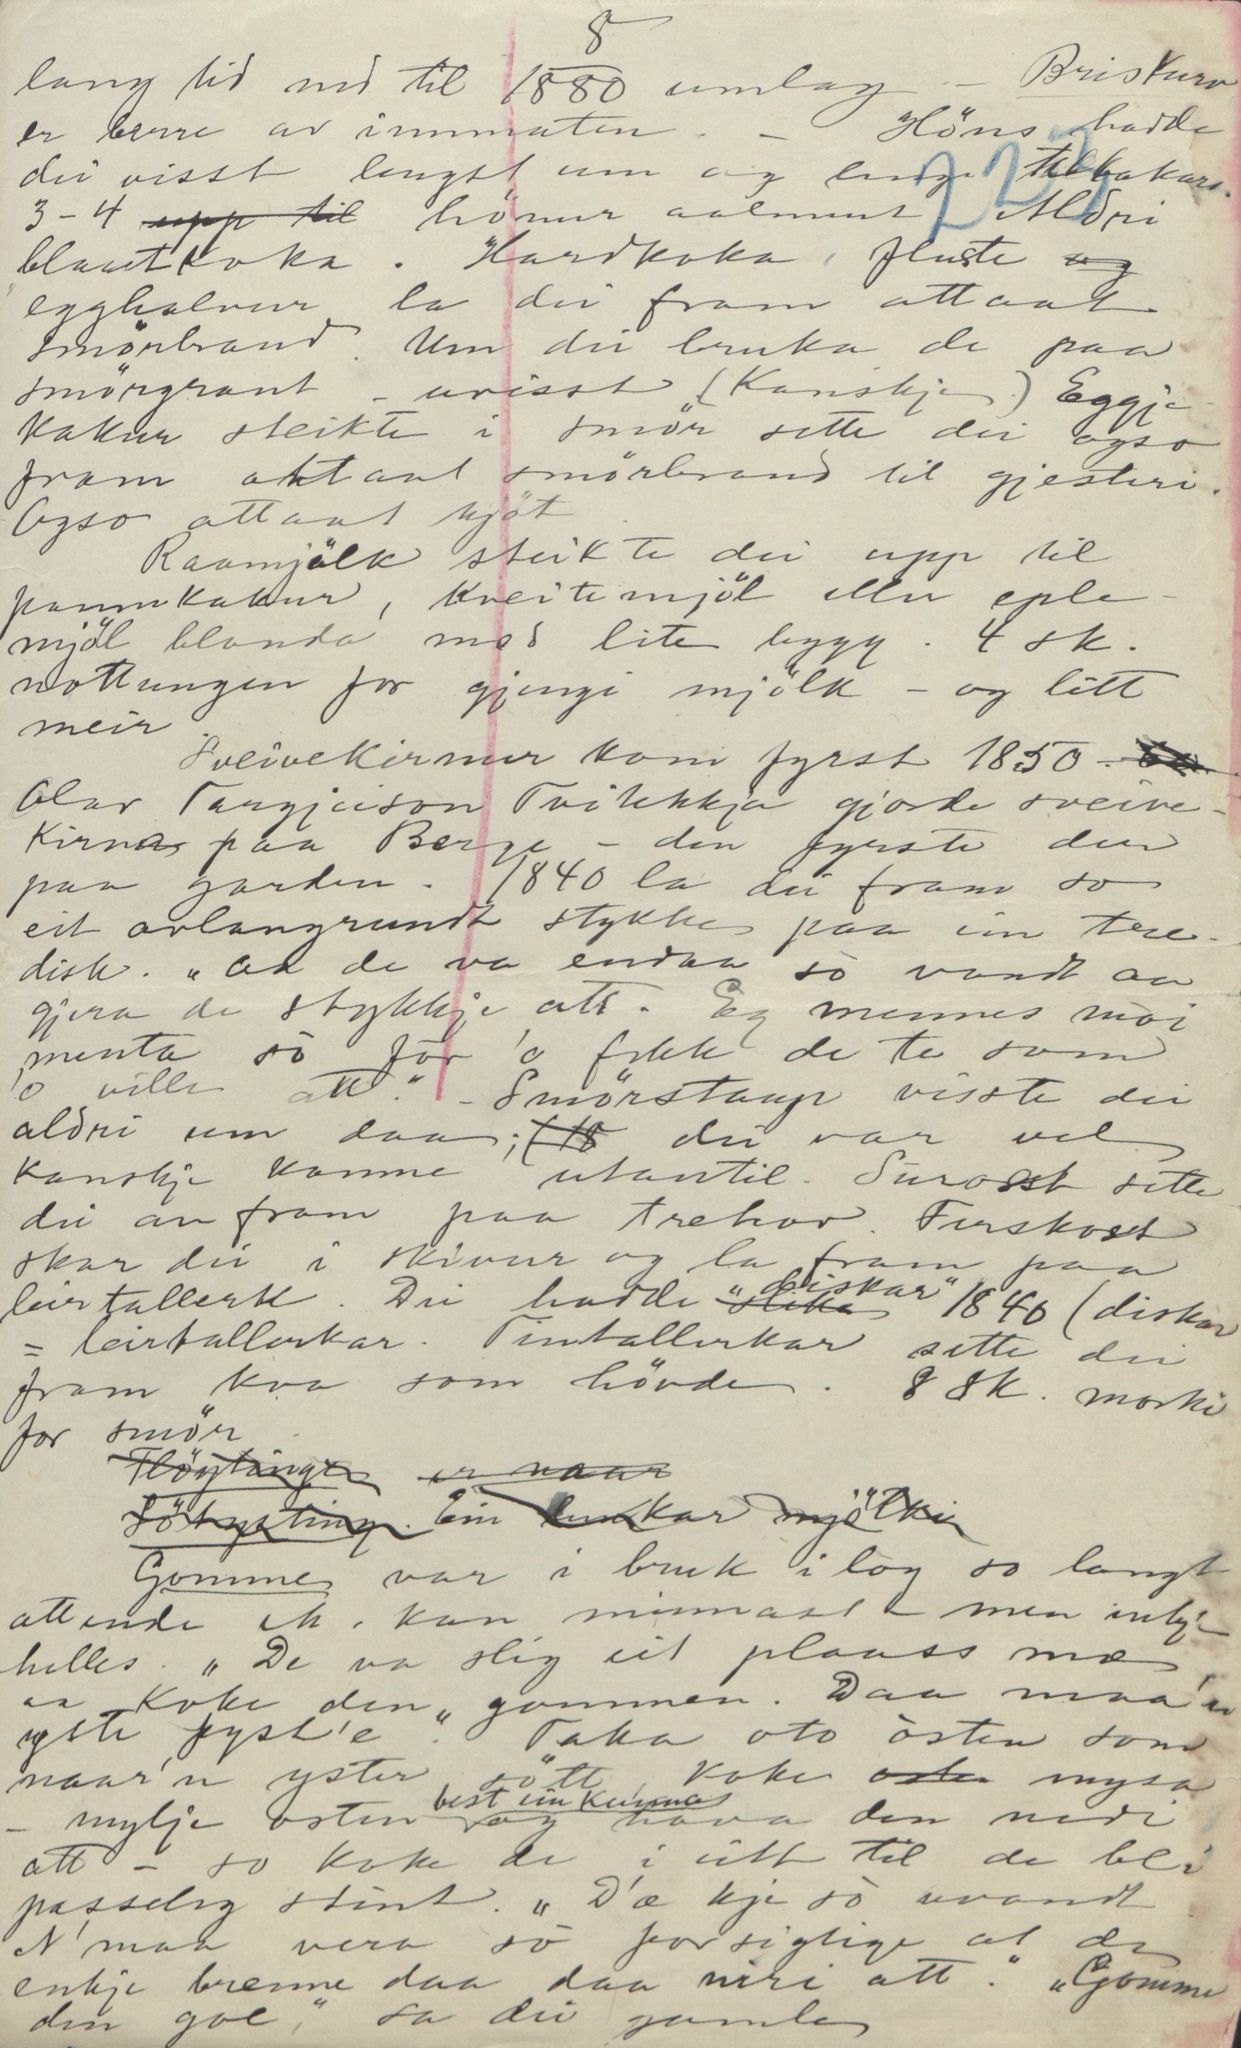 8
lang tid nd til 1880 umlag - Briskurv
er berre av innmaten. - Höns hadde
dei visst lengst um og lenge tilbakars.
223
3-4 upp til hönur aalment. Aldri
blautkoka. Hardkoka, fluste og
egghalvur la dei fram attaat
smörbraud. Um dei bruka de paa
smörgraut - uvisst (Kanskje) Eggje-
kakur steikte i smör sette dei ogso
fram attaat smörbraud til gjesteri.
Ogso attaat kjöt
Raamjölk steikte dei upp til
pannkakur, kveitemjöl eller eple-
mjöl blanda med lite bygg. 4 sk.
nottungen for gjengi mjölk - og litt
meir.
Sveivekirnur kom fyrst 1850.
Olav Targjeison Tvitekkja gjorde sveive-
kirna paa Berge - den fyrste der
paa garden. 1840 la dei fram so
eit avlangrundt stykke paa ein tre-
disk. "Aa de va endaa sò vandt aa
gjera de stykkje att. Eg mennes mòi
menta sò för 'o fekk de te som
'o ville att." - Smörstaup visste dei
aldri um daa; dei var vel
kanskje komne utantil. Surost sette
dei an fram paa trehov. Ferskost
skar dei i skivur og la fram paa
leirtallerk. Dei hadde slike "diskar" 1840 (diskar
= leirtallerkar. Tintallerkar sette dei
fram kva som hövde. 8 sk. morki
for smör
Flöytingen er naar
Sötysting. Ein lunkar mjölki
Gomme var i bruk i log so langt
attende ek. kan minnast - men inkje
helles. "De va slig eit plaass mæ
aa koke den "gommen. Daa maa'n
yste fyst'e". Taka oto östen som
naar'n yster sött, koke osten mysa
- mylje osten best ein kunna og hava den nedi
att - so koke de i eitt til de bli
passeleg stint. "D'æ kje sò uvandt
N'maa vera sò forsigtige at de
enkje brenne daa daa niri att." "Gomme
den goe," sa dei gamle